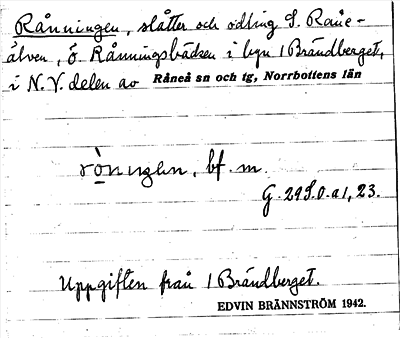 Rånningen, slåtter och odling S. Råne-
älven, ö. Rånningsbäcken i byn 1 Brändberget,
i N.V. delen av Råneå sn och tg, Norrbottens län
bf. m.
G. 29
Uppgiften från 1 Brändberget.
EDVIN BRÄNNSTRÖM 1942.